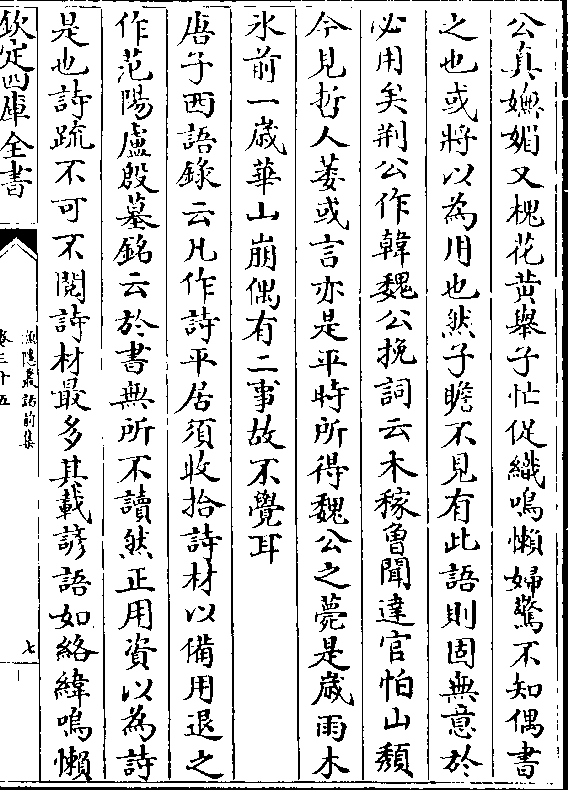 公真嫵媚又槐花黃舉子忙促織鳴懶婦驚不知偶書
之也或將以為用也然子瞻不見有此語則固無意於
必用矣荆公作韓魏公挽詞云木稼曽聞達官怕山頽
今見哲人萎或言亦是平時所得魏公之薨是歲雨木
氷前一歲華山崩偶有二事故不覺耳
唐子西語錄云凡作詩平居須收拾詩材以備用退之
作范陽盧殷墓銘云於書無所不讀然正用資以為詩
是也詩疏不可不閱詩材最多其載諺語如絡緯鳴懶
欽定四庫全書
漁隱叢話前集
卷三十五
七